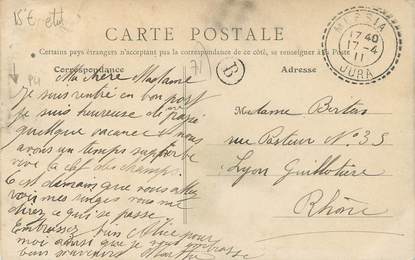 15€ etat
CARTE POSTALE
Certains pays étrangers n'acceptant pas la correspondance de ce côté, se renseigner à la Poste
Correspondance
Adresse
B
17 40
17-4
11
JURA
Ma chère Madame
Je suis rentré en bon port
je suis heureuse de
quelque vacance & nous
avons un temps superbe
vive la clef des champs.
C'est demain que vous allez
voir mes singes vous me
direz ce qui se passe.
Embrassez bien Alice pour
moi ainsi que je vous embrasse
bon souvenir
Madame Bertas
rue Pasteur N° 35
Lyon Guillotière
Rhône